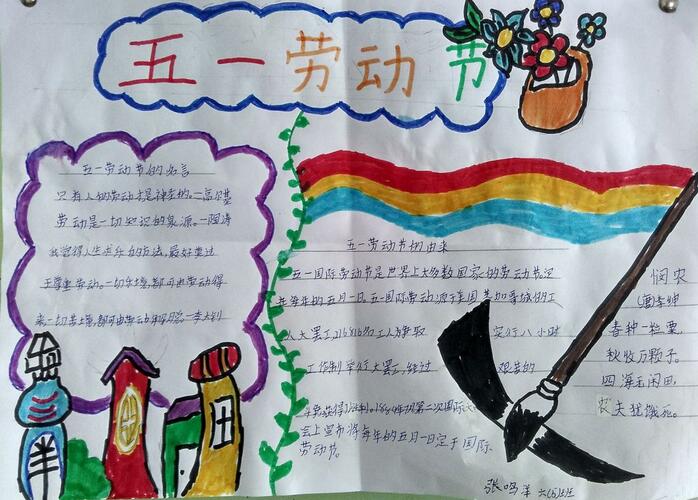 五一劳动节
五一劳动节的名言
只有人的劳动才是神圣的。—高尔基
劳动是一切知识的泉源。—陶铸
我觉得人生求乐的方法,最好莫过
于尊重劳动。一切乐境,都可由劳动得
来一切苦境,都可由劳动解脱。—李大钊
五一劳动节的由来
五一国际劳动节是世界上大多数国家的劳动节定
在每年的五月一日五一国际劳动源于美国芝加哥城的工
人大罢工,216816名工人争取 实行八小时
工作制举行大罢工,经过 艰苦的
获得了胜利。1889年7月第二次国际
会上宣布将每年的五月一日定于国际
劳动节。
悯农
(唐)李绅
春种一粒粟,
秋收万颗子。
四海无闲田,
农夫犹饿死。
张鸣 六(5)班